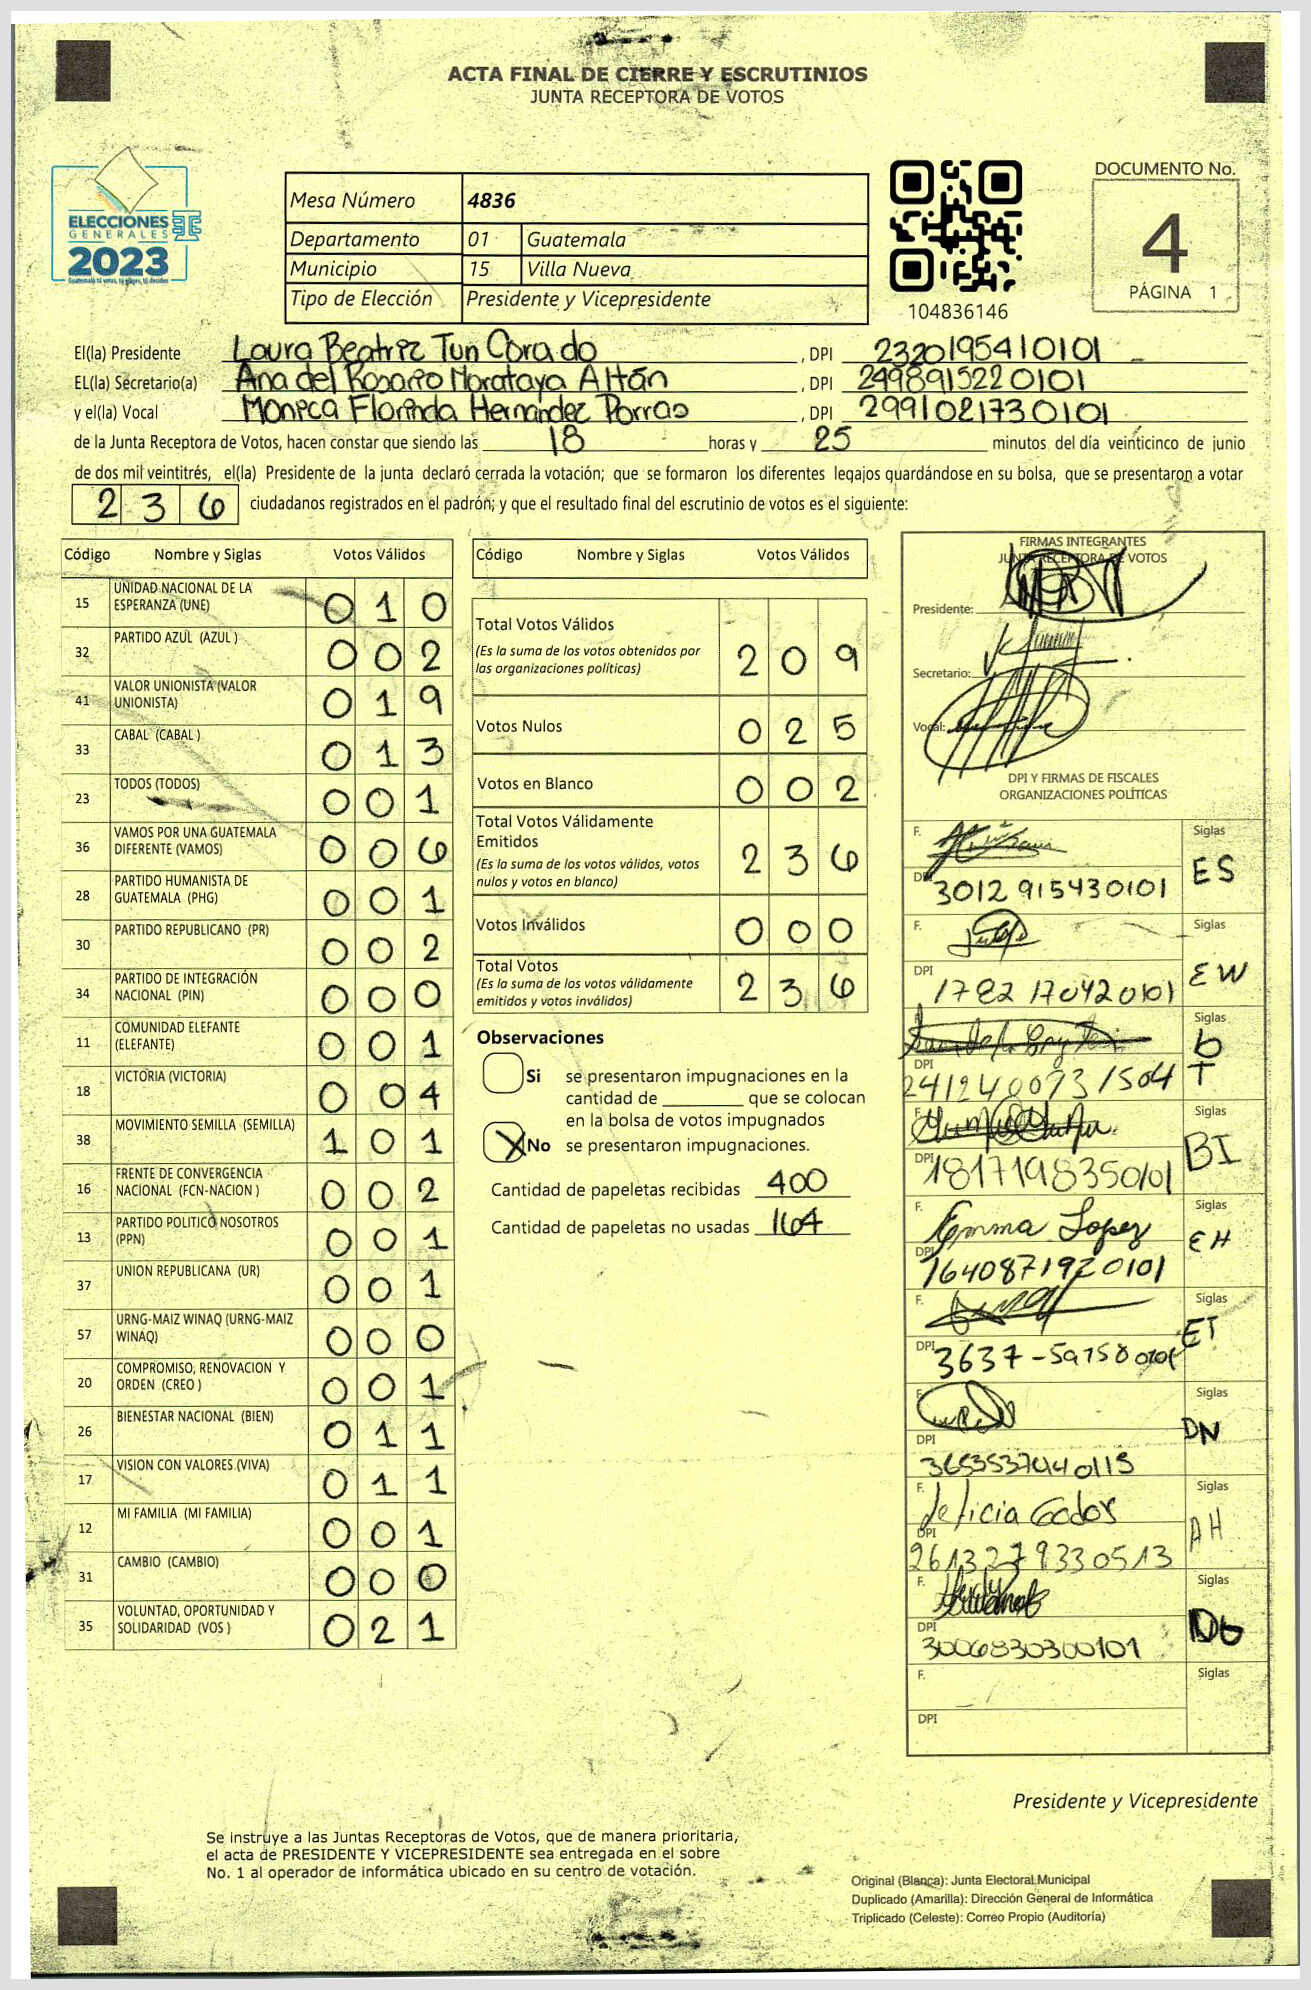 ACTA FINAL DE CIERRE Y ESCRUTINIOS
JUNTA RECEPTORA DE VOTOS
ELECCIONES
GENERALES
2023
Mesa Número 4836
Departamento 01 Guatemala
Municipio 15 Villa Nueva
Tipo de Elección Presidente y Vicepresidente
104836146
DOCUMENTO No.
4
PÁGINA 1
El(la) Presidente Laura Beatriz Tun Corado , DPI 2320195410101
EL(la) Secretario(a) Ana del Rosario Morataya Altán , DPI 2498915220101
y el(la) Vocal Moneca Florinda Hernandez Porras , DPI 2991021730101
de la Junta Receptora de Votos, hacen constar que siendo las 18 horas y 25 minutos del día veinticinco de junio
de dos mil veintitrés, el(la) Presidente de la junta declaró cerrada la votación; que se formaron los diferentes legajos guardándose en su bolsa, que se presentaron a votar
236 ciudadanos registrados en el padrón; y que el resultado final del escrutinio de votos es el siguiente:
Código Nombre y Siglas Votos Válidos
15 UNIDAD NACIONAL DE LA ESPERANZA (UNE) 0 1 0
32 PARTIDO AZUL (AZUL ) 0 0 2
41 VALOR UNIONISTA (VALOR UNIONISTA) 0 1 9
33 CABAL (CABAL ) 0 1 3
23 TODOS (TODOS) 0 0 1
36 VAMOS POR UNA GUATEMALA DIFERENTE (VAMOS) 0 0 6
28 PARTIDO HUMANISTA DE GUATEMALA (PHG) 0 0 1
30 PARTIDO REPUBLICANO (PR) 0 0 2
34 PARTIDO DE INTEGRACIÓN NACIONAL (PIN) 0 0 0
11 COMUNIDAD ELEFANTE (ELEFANTE) 0 0 1
18 VICTORIA (VICTORIA) 0 0 4
38 MOVIMIENTO SEMILLA (SEMILLA) 1 0 1
16 FRENTE DE CONVERGENCIA NACIONAL (FCN-NACION ) 0 0 2
13 PARTIDO POLITICO NOSOTROS (PPN) 0 0 1
37 UNION REPUBLICANA (UR) 0 0 1
57 URNG-MAIZ WINAQ (URNG-MAIZ WINAQ) 0 0 0
20 COMPROMISO, RENOVACION Y ORDEN (CREO ) 0 0 1
26 BIENESTAR NACIONAL (BIEN) 0 1 1
17 VISION CON VALORES (VIVA) 0 1 1
12 MI FAMILIA (MI FAMILIA) 0 0 1
31 CAMBIO (CAMBIO) 0 0 0
35 VOLUNTAD, OPORTUNIDAD Y SOLIDARIDAD (VOS ) 0 2 1
Código Nombre y Siglas Votos Válidos
Total Votos Válidos 2 0 9
(Es la suma de los votos obtenidos por
las organizaciones políticas)
Votos Nulos 0 2 5
Votos en Blanco 0 0 2
Total Votos Válidamente
Emitidos 2 3 6
(Es la suma de los votos válidos, votos
nulos y votos en blanco)
Votos Inválidos 0 0 0
Total Votos 2 3 6
(Es la suma de los votos válidamente
emitidos y votos inválidos)
Observaciones
Si se presentaron impugnaciones en la
cantidad de ________ que se colocan
en la bolsa de votos impugnados
X No se presentaron impugnaciones.
Cantidad de papeletas recibidas 400
Cantidad de papeletas no usadas 164
FIRMAS INTEGRANTES
JUNTA RECEPTORA DE VOTOS
Presidente:
Secretario:
Vocal:
DPI Y FIRMAS DE FISCALES
ORGANIZACIONES POLÍTICAS
F. Siglas
DPI 3012 915430101 ES
F. Siglas
DPI 1782 170420101 EW
F. Siglas
DPI 241240073 1504 T
F. Siglas
DPI 1817198350101 BI
F. Emma Lopez Siglas
DPI 1640871920101 EH
F. Siglas
DPI 3637-597580101 ET
F. Siglas
DPI DN
F. Leticia Godoy Siglas
DPI 2613279330513 AH
F. Siglas
DPI 3006830300101
F. Siglas
DPI
Presidente y Vicepresidente
Se instruye a las Juntas Receptoras de Votos, que de manera prioritaria,
el acta de PRESIDENTE Y VICEPRESIDENTE sea entregada en el sobre
No. 1 al operador de informática ubicado en su centro de votación.
Original (Blanca): Junta Electoral Municipal
Duplicado (Amarilla): Dirección General de Informática
Triplicado (Celeste): Correo Propio (Auditoría)